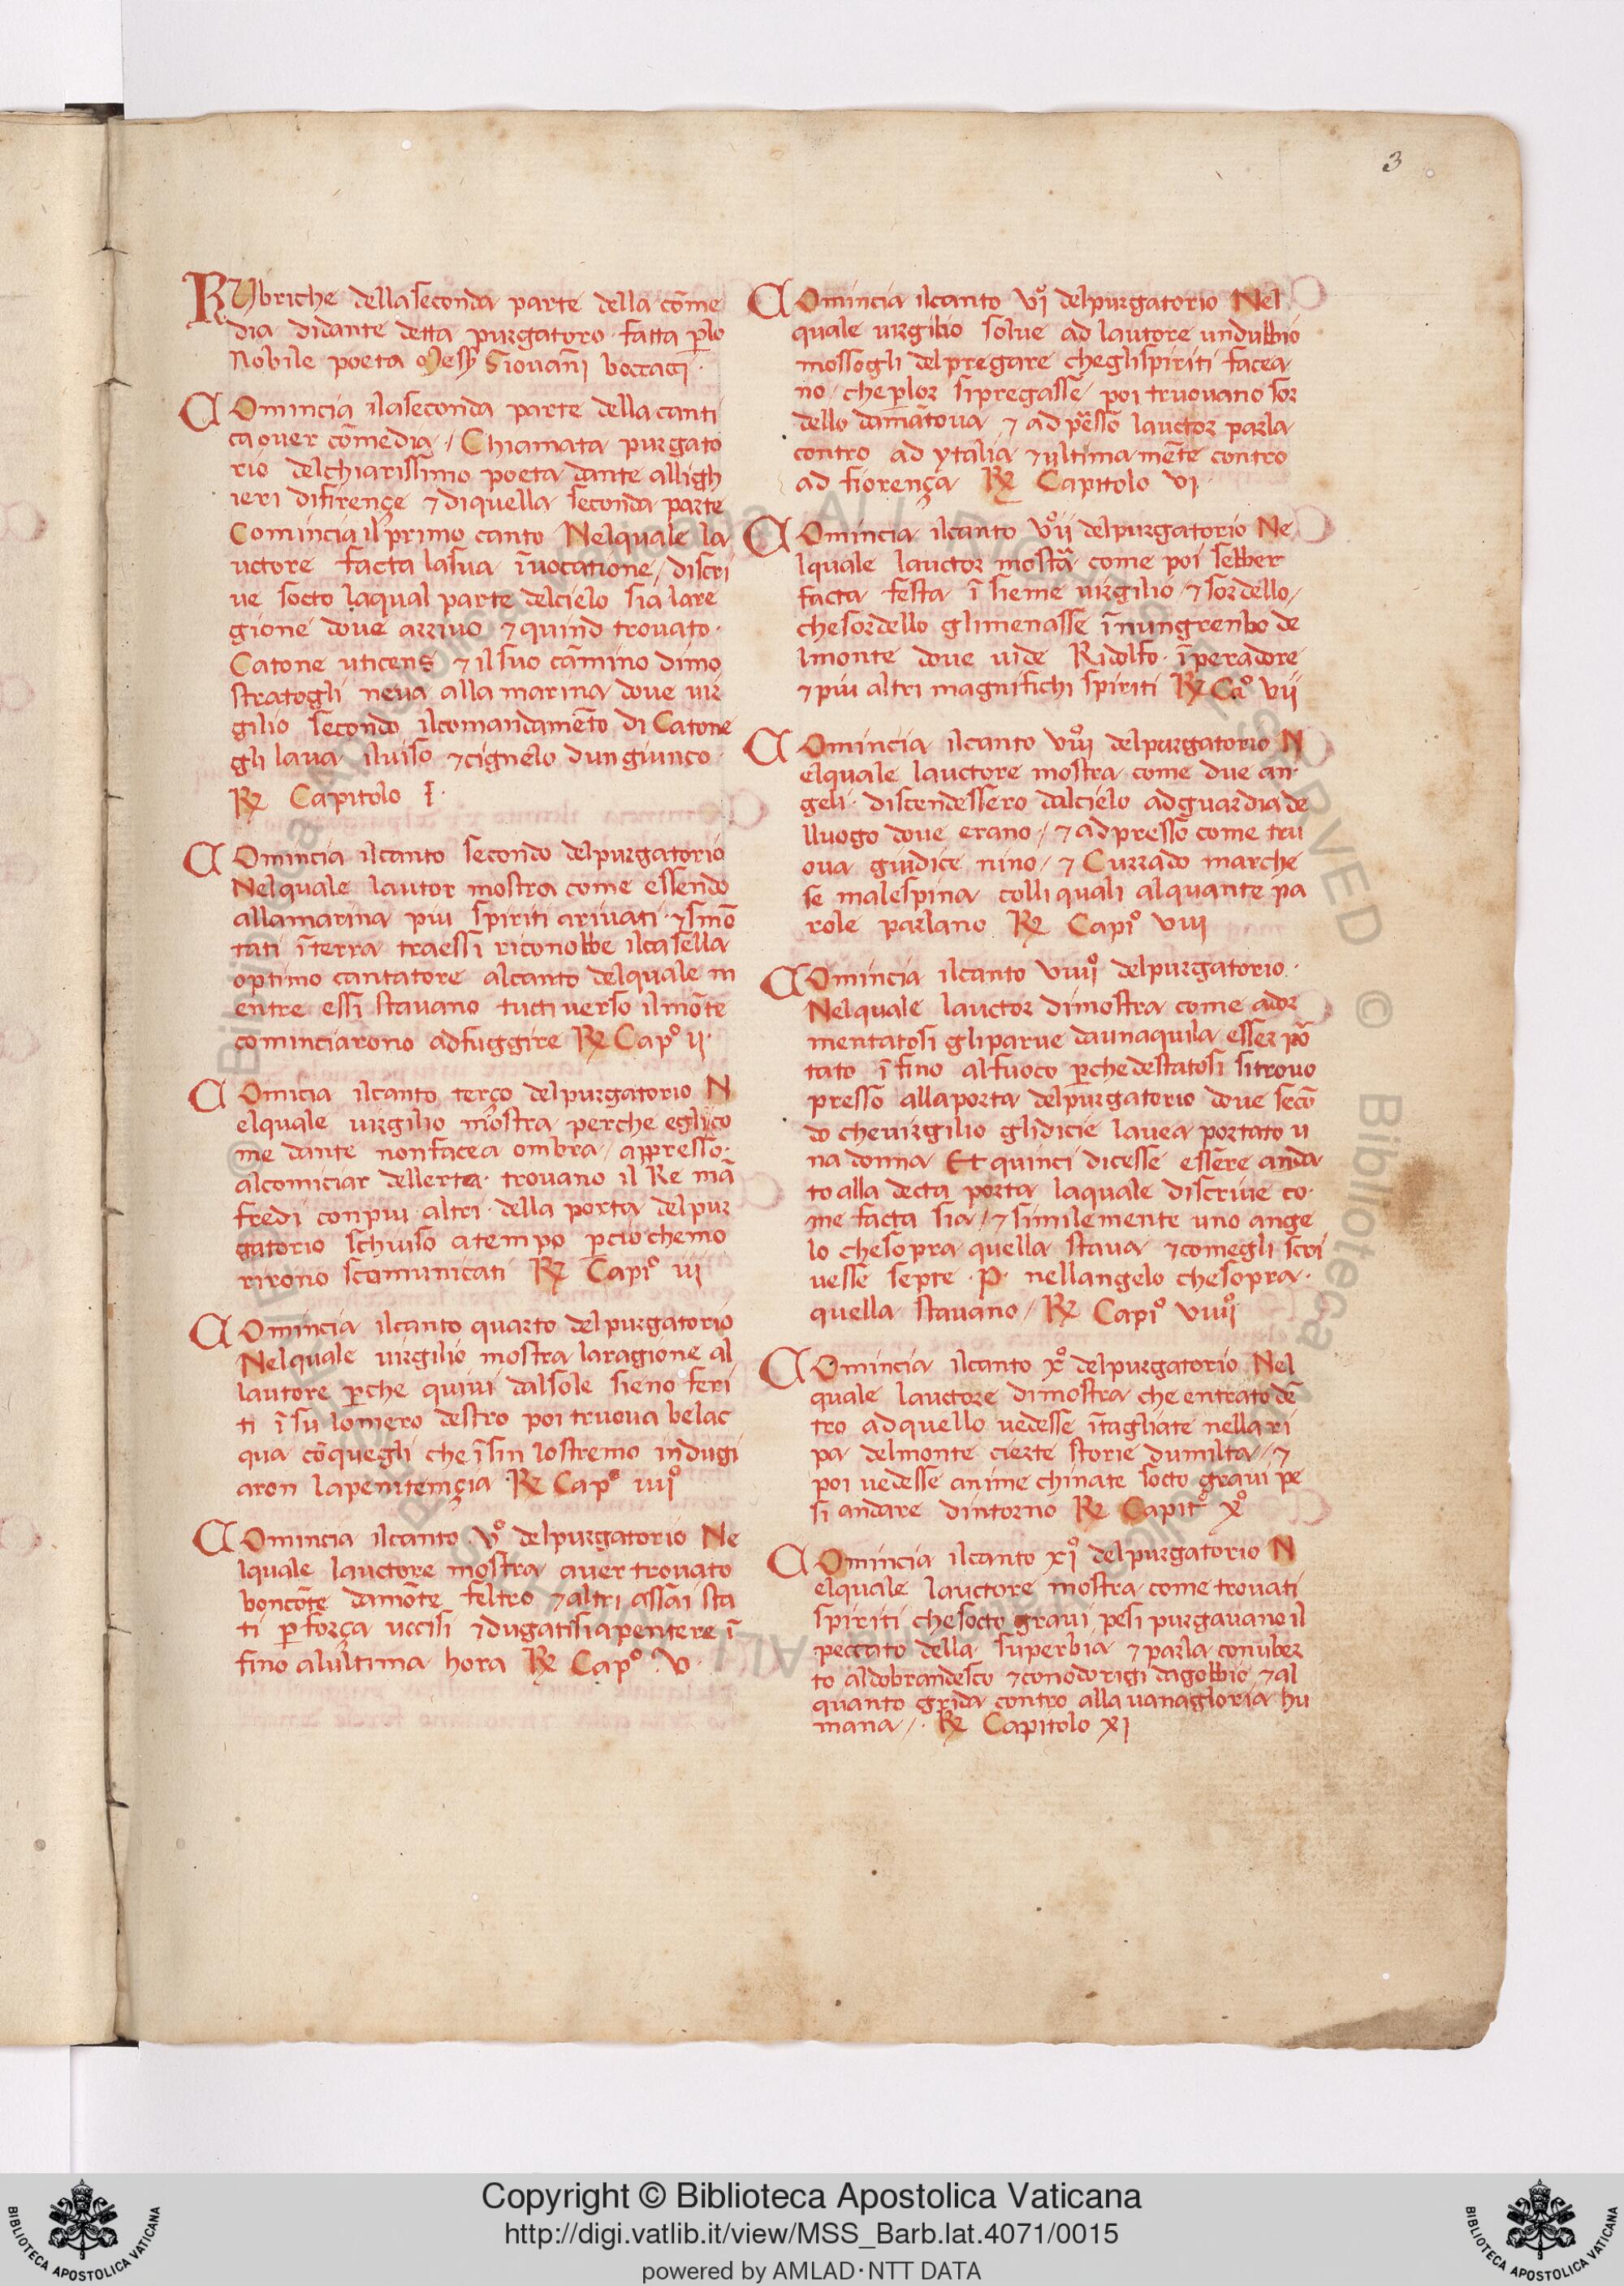 3
RUbriche dellaseconda parte della cōme
dia didante detta purgatoro · fatta p̄lo
Nobile poeta Mess̄ Giovan̄i boccacci ·
COmincia ilaseconda parte della canti
ca over cōmedia / Chiamata purgato
rio delchiarissimo poeta dante alligh
ieri difirençe ⁊ diquella seconda parte
Comincia il primo canto Nelquale la
uctore facta lasua īvocatione / discri
ve socto laqual parte delcielo sia lare
gione dove arrivo ⁊ quind trovato ·
Catone uticens ⁊ il suo cāmino dimo
stratogli neva alla marina dove vir
gilio secondo ilcomandamēto di Catone
gli lava iluiso ⁊ cignelo dun giunco ·
R Capitolo I ·
COmincia ilcanto secondo delpurgatorio
Nelquale lautor mostra come essendo
allamarina piu spiriti arivati · ⁊ smō
tati īterra traessi riconobbe ilcasella
optimo cantatore alcanto delquale m
entre essi stavano tucti verso il mōte
cominciarono adfuggire R Capº ii ·
COmicia ilcanto terço delpurgatorio N
elquale virgilio mostra perche egli co
me dante nonfacea ombra / appresso ·
alcomiciar dellerta · trovano il Re mā
fredi conpiu altri · della porta delpur
gatorio schiusi atempo p̄cio chemo
rirono scomunicati R Capiº iii
COmincia ilcanto quarto delpurgatorio
Nelquale virgilio mostra laragione al
lautore p̄che quivi dalsole sieno feri
ti ī su lomero destro poi truova belac
qua cōquegli che īsin lostremo indugi
aron lapenitençia R Capº iiiiº
COmincia ilcanto vº delpurgatorio Ne
lquale lauctore mostra aver trovato
boncōte damōte feltro ⁊ altri assai sta
ti p̄ força uccisi ⁊ dugatisi apentere ī
fino alultima hora R Capº · V ·
COmincia ilcanto viº delpurgatorio Nel
quale virgilio solve ad lautore undubbio
mossogli delpregare chegli spiriti facea
no / che p̄lor sipregasse / poi truovano sor
dello damātova / ⁊ ad p̄sso lauctor parla
contro ad ytalia ⁊ ultima mēte contro
ad fiorença R Capitolo vi ·
COmincia ilcanto vºii delpurgatorio Ne
lquale lauctor mostā come poi sebber
facta festa ī sieme virgilio / ⁊ sordello /
chesordello glimenasse ī nungrenbo de
lmonte dove vide Ridolfo · īperadore
⁊ piu altri magnifichi spiriti R Caº vii
COmincia ilcanto viiiº delpurgatorio N
elquale lauctore mostra come due an ·
geli · discendessero dalcielo adguardia de
lluogo dove erano / ⁊ adpresso come tru
ova giudice nino / ⁊ Currado marche
se malespina colli quali alquante pa
role parlano R Capiº viii
COmincia ilcanto viiiiº delpurgatorio ·
Nelquale lauctor dimostra come ador
mentatosi gliparve daunaquila esser por
tato ī fino alfuoco p̄chedestatosi sitrovo
presso allaporta delpurgatorio dove secō
do chevirgilio glidicie lavea portato u
na donna Et quinci dicesse essere anda
to alla decta porta laquale discrive co ·
me facta sia / ⁊ similemente uno ange
lo chesopra quella stava ⁊ comegli scri
vesse septe · P · nellangelo chesopra ·
quella stavano / R Capiº viiiiº
COmincia ilcanto xº delpurgatorio Nel
quale lauctore dimostra che entrato dē
tro adquello vedesse ītagliate nella ri
pa delmonte cierte storie dumilta / ⁊
poi vedesse anime chinate socto gravi pe
si andare dintorno R Capitº xº
COmincia ilcanto xiº delpurgatorio N
elquale lauctore mostra come trovati
spiriti chesocto gravi pesi purgavano il
peccato della superbia ⁊ parla conuber
to aldobrandesco ⁊ conodorigi dagobbio / ⁊ al
quanto grida contro alla vanagloria hu
mana / · R Capitolo xi
Copyright © Biblioteca Apostolica Vaticana
http://digi.vatlib.it/view/MSS_Barb.lat.4071/0015
powered by AMLAD·NTT DATA
BIBLIOTECA APOSTOLICA VATICANA
BIBLIOTECA APOSTOLICA VATICANA